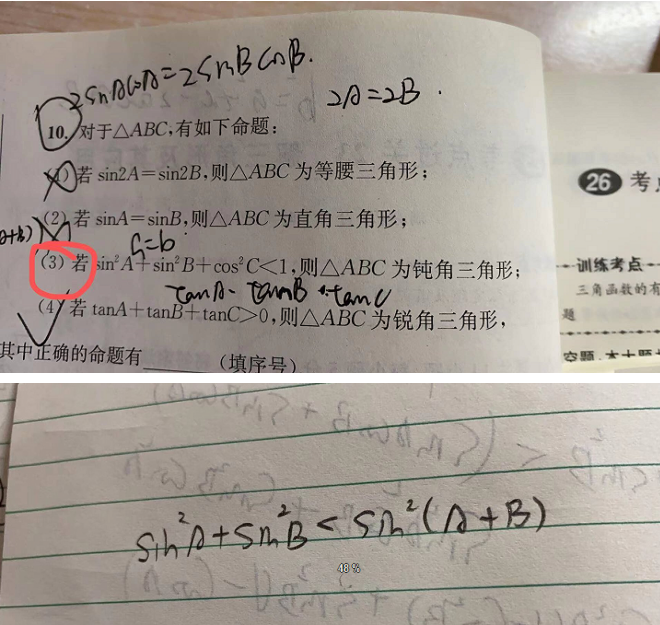 2sinAcosA=2sinBcosB.
2A=2B.
10. 对于△ABC,有如下命题:
(1)若 sin2A=sin2B,则△ABC 为等腰三角形;
(2)若 sinA=sinB,则△ABC 为直角三角形;
a=b
(3)若 sin²A+sin²B+cos²C<1,则△ABC 为钝角三角形;
tanA· tanB ·tanC
(4)若 tanA+tanB+tanC>0,则△ABC 为锐角三角形,
其中正确的命题有______(填序号)
26 考
训练考点
三角函数的有
题
sin²A+sin²B<sin²(A+B)
48 %